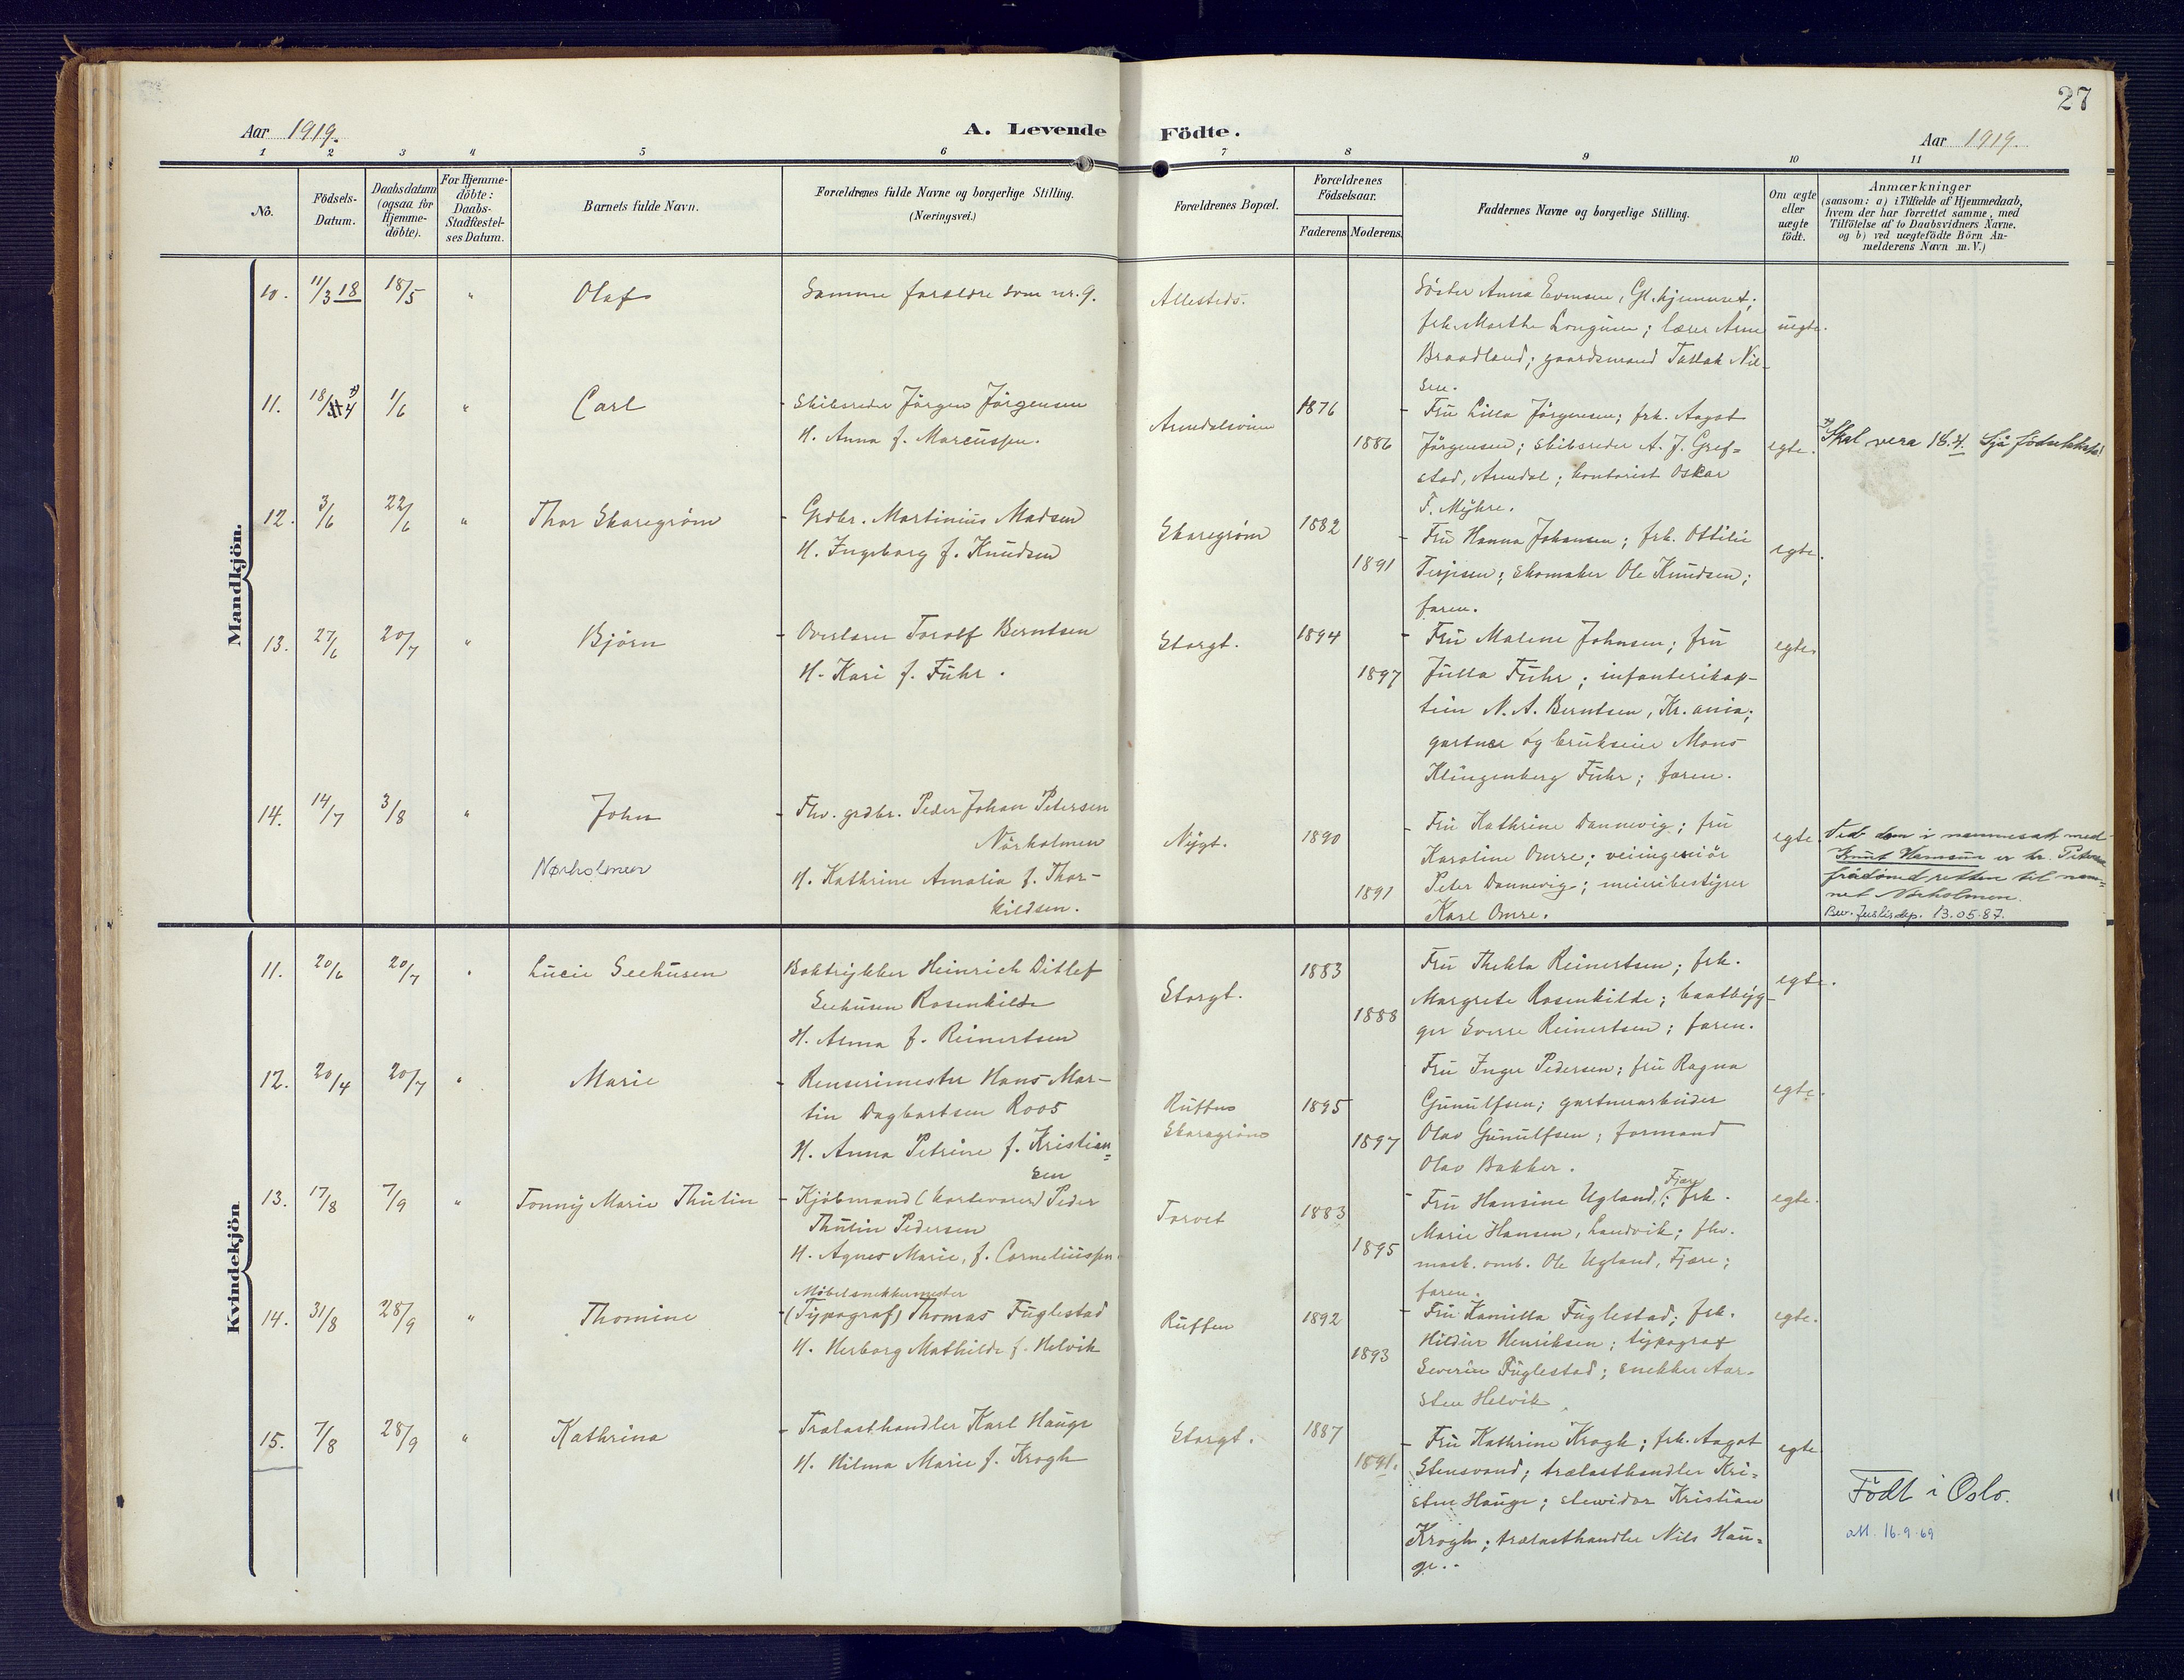 27
Aar 1919.
A. Levende Födte.
Aar 1919.
1 2 3 4 5 6 7 8 9 10 11
No.
Födsels-
Datum.
Daabsdatum
(ogsaa for
Hjemme-
döbte).
For Hjemme-
döbte:
Daabs-
Stadfæstel-
ses Datum.
Barnets fulde Navn.
Forældrenes fulde Navne og borgerlige Stilling.
(Næringsvei.)
Forældrenes Bopæl.
Forældrenes
Födselsaar.
Faderens Moderens
Faddernes Navne og borgerlige Stilling.
Om ægte
eller
uægte
födt.
Anmærkninger
(saasom: a) i Tilfælde af Hjemmedaab,
hvem der har forrettet samme, med
Tilföielse af to Daabsvidners Navne.
og b) ved uægtefödte Börn An-
melderens Navn m. V.)
Mandkjön.
10. 11/3 18 18/5 " Olaf
Samme foreldre som nr. 9.
Allesteds.
Söster Anna Evensen, Gl. hjemmet;
frk. Marthe Longum; lærer Arne
Braadland; gaardsmand Tallak Nil-
sen.
uegte.
11. 18/4 1/6 " Carl
Skibsreder Jörgen Jörgensen
H. Anna f. Marcussen.
Arendalsveien
1876
1886
Fru Lilla Jörgensen; frk. Aagot
Jörgensen; skibsreder A. J. Gref-
stad, Arendal; kontorist Oskar
F. Myhre.
egte.
Skal vera 18.4. Sjå födselslista!
12. 3/6 22/6 " Thor Skaregrøm
Grdbr. Martinius Madsen
H. Ingeborg f. Knudsen
Skaregrøm
1882
1891
Fru Hanna Johansen; frk. Ottilie
Terjesen; skomaker Ole Knudsen;
faren.
egte.
13. 27/6 20/7 " Bjørn
Overlærer Torolf Berntsen
H. Kari f. Fuhr.
Storgt.
1894
1897
Fru Malene Johnsen; fru
Julla Fuhr; infanterikap-
tein N. A. Berntsen, Kr.ania;
gartner og brukseier Mons
Klingenberg Fuhr; faren.
egte.
14. 14/7 3/8 " John
Nørholmen
Fhv. grdbr. Peder Johan Petersen
Nörholmen
H. Kathrine Amalia f. Thor-
kildsen.
Nygt.
1890
1891
Fru Kathrine Dannevig; fru
Karoline Omre; veiingeniör
Peter Dannevig; meieribestyrer
Karl Omre.
egte.
Ved dom i navnesak med
Knut Hamsun er hr. Petersen
frådömd retten til nam-
net Nörholmen.
Bev. Justisdep. 13.05.87.
Kvindekjön
11. 20/6 20/7 " Lucie Seehusen
Boktrykker Heinrich Ditlef
Seehusen Rosenkilde
H. Anna f. Reinertsen
Storgt.
1883
1888
Fru Thekla Reinertsen; frk.
Margrete Rosenkilde; baatbyg-
ger Sverre Reinertsen; faren.
egte.
12. 20/4 20/7 " Marie
Renserimester Hans Mar-
tin Dagbartsen Roos
H. Anna Petrine f. Kristian-
sen
Skaregrøm
1895
1897
Fru Inger Pedersen; fru Ragna
Gunulfsen; gartnerarbeider
Olav Gunulfsen; formand
Olav Bakker.
egte.
13. 17/8 7/9 " Tonny Marie Thulin
Kjöbmand (kortevarer) Peder
Thulin Pedersen
H. Agnes Marie, f. Corneliussen
Torvet
1883
1895
Fru Hansine Ugland, Fjære; frk.
Marie Hansen, Landvik; fhv.
mask. omb. Ole Ugland, Fjære;
faren.
egte.
14. 31/8 28/9 " Thomine
Möbelsnekkermester
(Typograf) Thomas Fuglestad
H. Herborg Mathilde f. Helvik
1892
1893
Fru Kamilla Fuglestad; frk.
Hildur Henriksen; typograf
Severin Fuglestad; snekker Aar-
sten Helvik.
egte.
15. 7/8 28/9 " Kathrina
Trælasthandler Karl Hauge
H. Hilma Marie f. Krogh
Storgt.
1887
1891.
Fru Kathrine Krogh; frk. Aagot
Stensvand; trælasthandler Kri-
sten Hauge; stewidor Kristian
Krogh; trælasthandler Nils Hau-
ge.
egte
Födt i Oslo.
att. 16.9.69